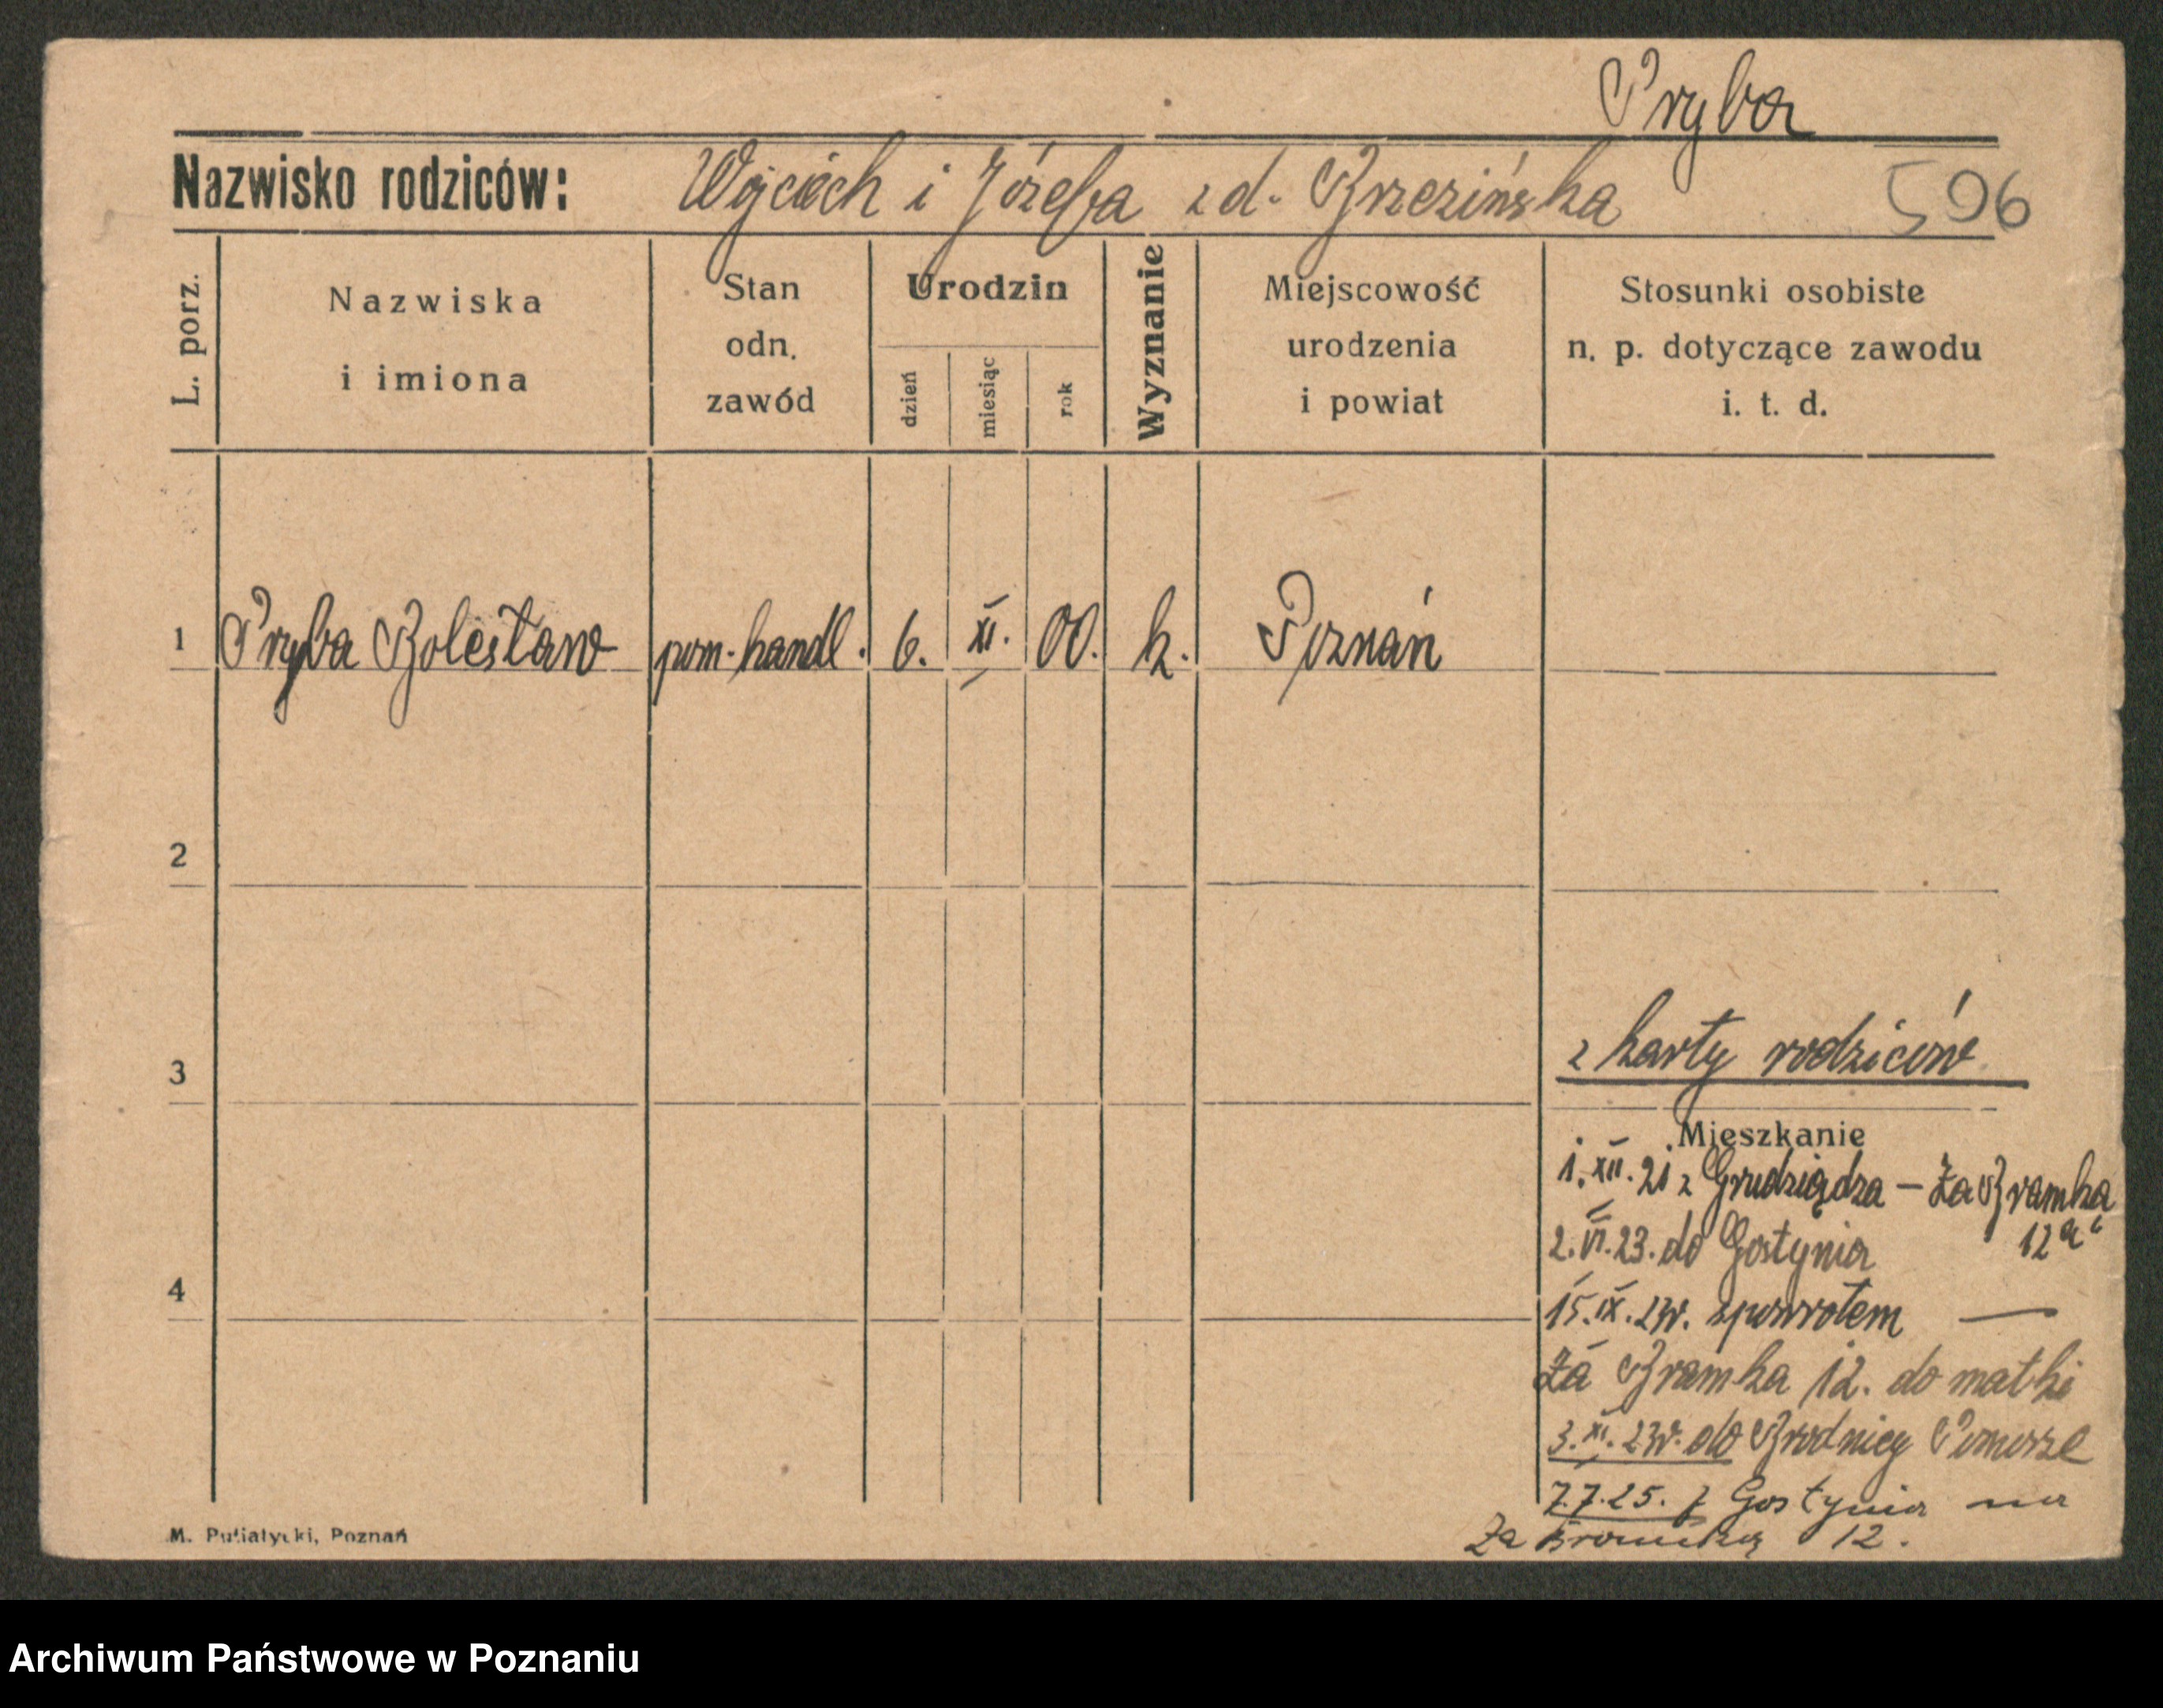 Pryba
Nazwisko rodziców: Wojciech i Józefa z d. Brzezińska 596
L. porz.
Nazwiska
i imiona
Stan
odn.
zawód
Urodzin
dzień
miesiąc
rok
Wyznanie
Miejscowość
urodzenia
i powiat
Stosunki osobiste
n. p. dotyczące zawodu
i. t. d.
1 Pryba Bolesław pom. handl. 6. XI. 00. k. Poznań
2
3
z karty rodziców
Mieszkanie
1. XII. 21 z Grudziądza – Za Bramką
12a
2. VI. 23. do Gostynia
4
15. IX. 23r. zpowrotem —
Za Bramka 12. do matki
3. XI. 23r. do Brodnicy Pomorze
7.7.25. z Gostynia na
Za Bramką 12.
M. Putiatycki, Poznań
Archiwum Państwowe w Poznaniu